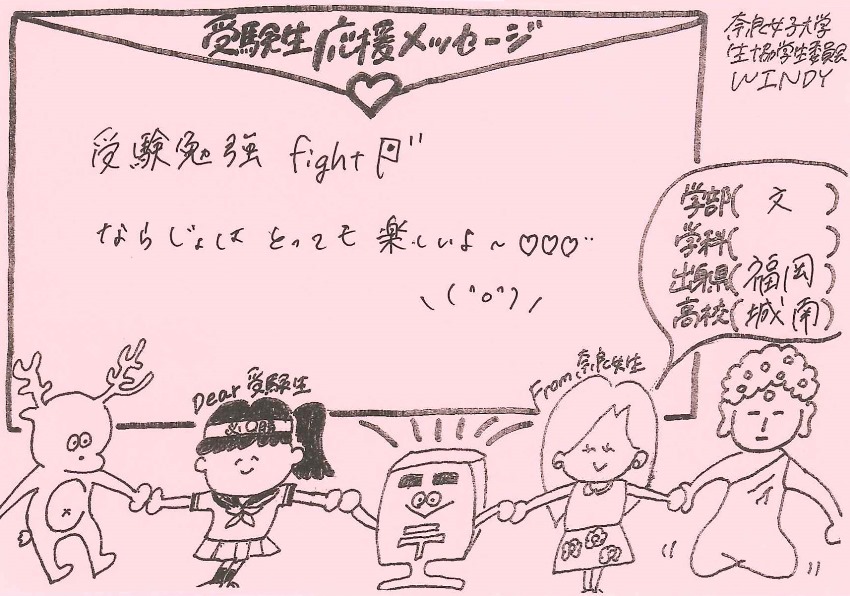 受験生応援メッセージ
奈良女子大学
生協学生委員会
WINDY
受験勉強 fight
ならじょは とっても 楽しいよ~♡♡♡
\(^o^)/
学部( 文 )
学科( )
出身県(福岡)
高校(城南)
Dear 受験生
From 奈良女生
必勝
〒